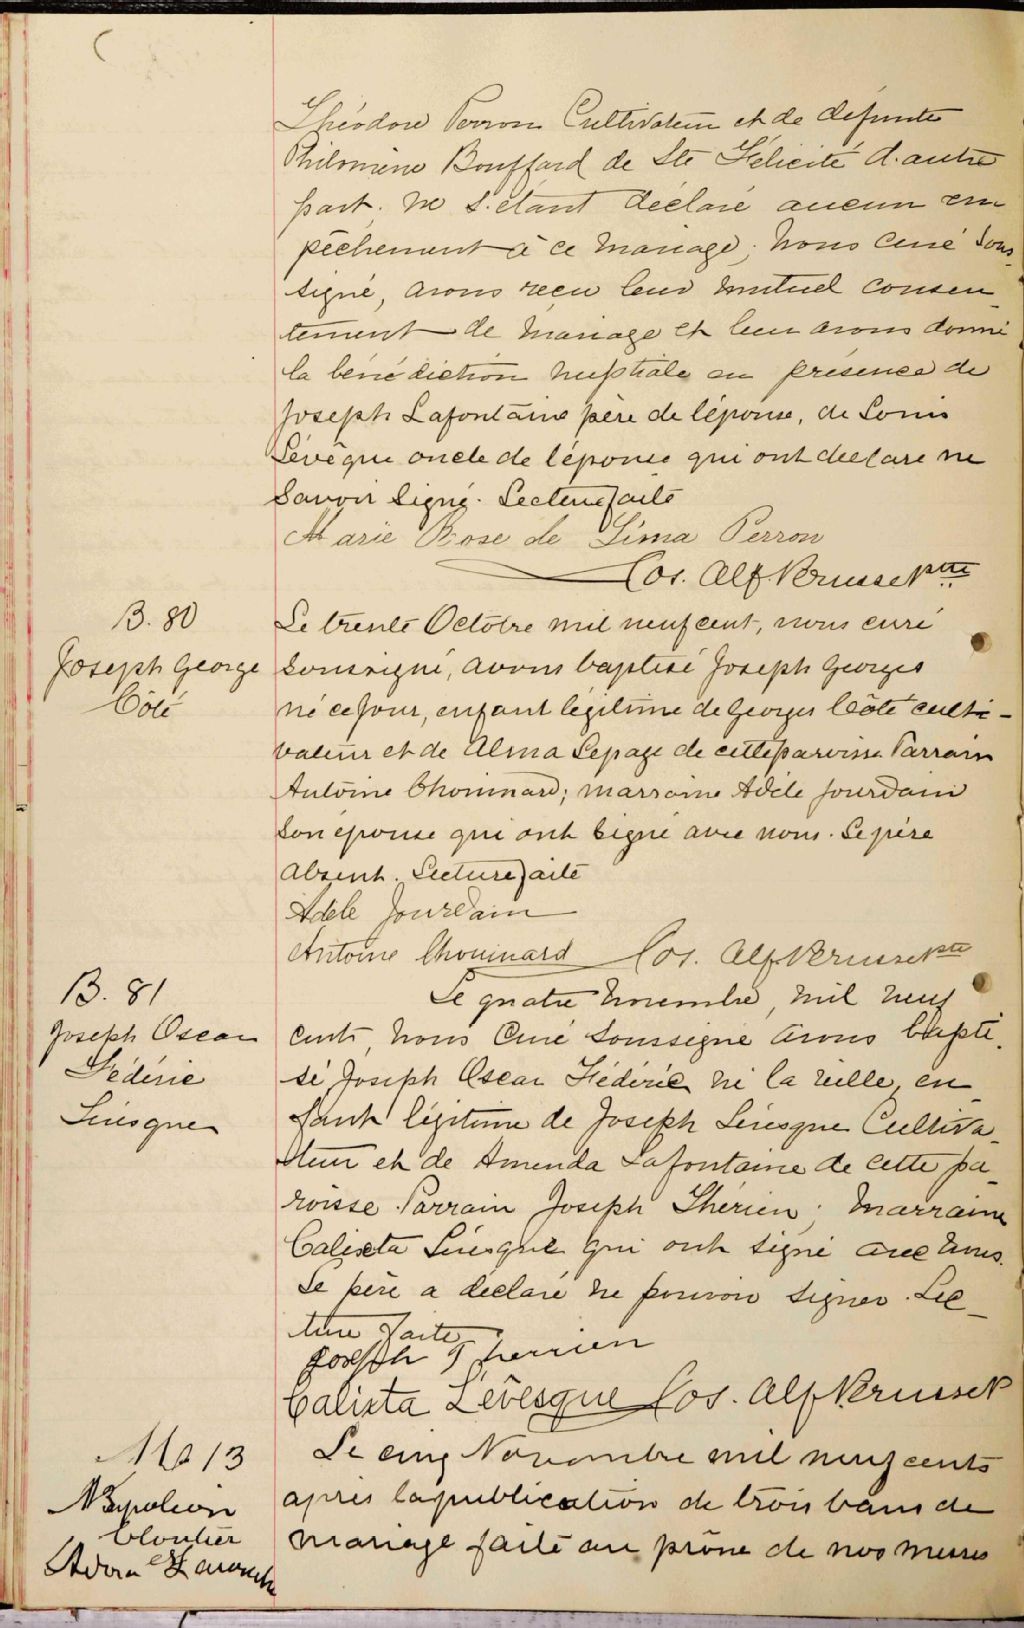 Théodore Perron Cultivateur et de défunte
Philomène Bouffard de Ste Félicité d'autre
part. ne s'étant déclaré aucun em
pêchement à ce mariage, Nous Curé Sous-
signé, avons reçu leur mutuel consen-
tement de mariage et leur avons donné
la bénédiction nuptiale en présence de
Joseph Lafontaine père de l'épouse, de Louis
Lévêque oncle de l'épouse qui ont déclare ne
Savoir Signé. Lecture faite
Marie Rose de Lima Perron
Jos. Alf ptre
B. 80
Joseph George
Côté
Le trente Octobre mil neuf cent, nous curé
Soussigné, avons baptisé Joseph Georges
né ce jour, enfant légitime de Georges Côté culti-
vateur et de Alma Lepage de cette paroisse Parrain
Antoine Chouinard; marraine Adèle Jourdain
Son épouse qui ont Signé avec nous. Le père
absent. Lecture faite
Adèle Jourdain
Antoine Chouinard Jos. Alf ptre
B. 81
Joseph Oscar
Fédéric
Lévesque
Le quatre novembre, mil neuf
cents, Nous Curé Soussigné avons bapti-
sé Joseph Oscar Fédéric né la veille, en-
fant légitime de Joseph Lévesque Cultiva-
teur et de Amenda Lafontaine de cette pa-
roisse. Parrain Joseph Thérien; Marraine
Calixta Lévesque qui ont signé avec nous.
Le père a déclaré ne pouvoir signer. Lec-
ture faite
Joseph Therrien
Calixta Lévesque Jos. Alf
M 13
Napoleon
Cloutier
et
Le cinq Novembre mil neuf cents
après la publication de trois bans de
mariage faite au prône de nos messes